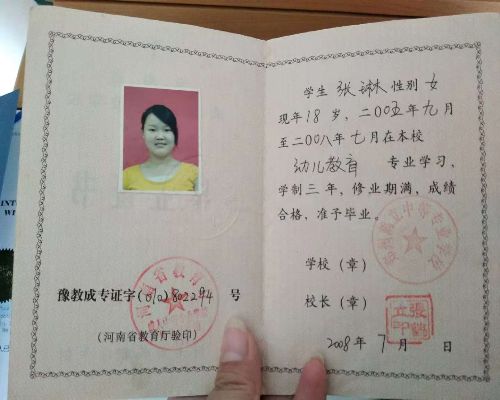 豫教成专证字(010)802294 号
(河南省教育厅验印)
学生 张琳 性别 女
现年 18 岁,二〇〇五年九月
至二〇〇八年七月在本校
幼儿教育 专业学习,
学制三年,修业期满,成绩
合格,准予毕业。
学校(章)
校长(章)
2008年 7 月 日
河南省教育